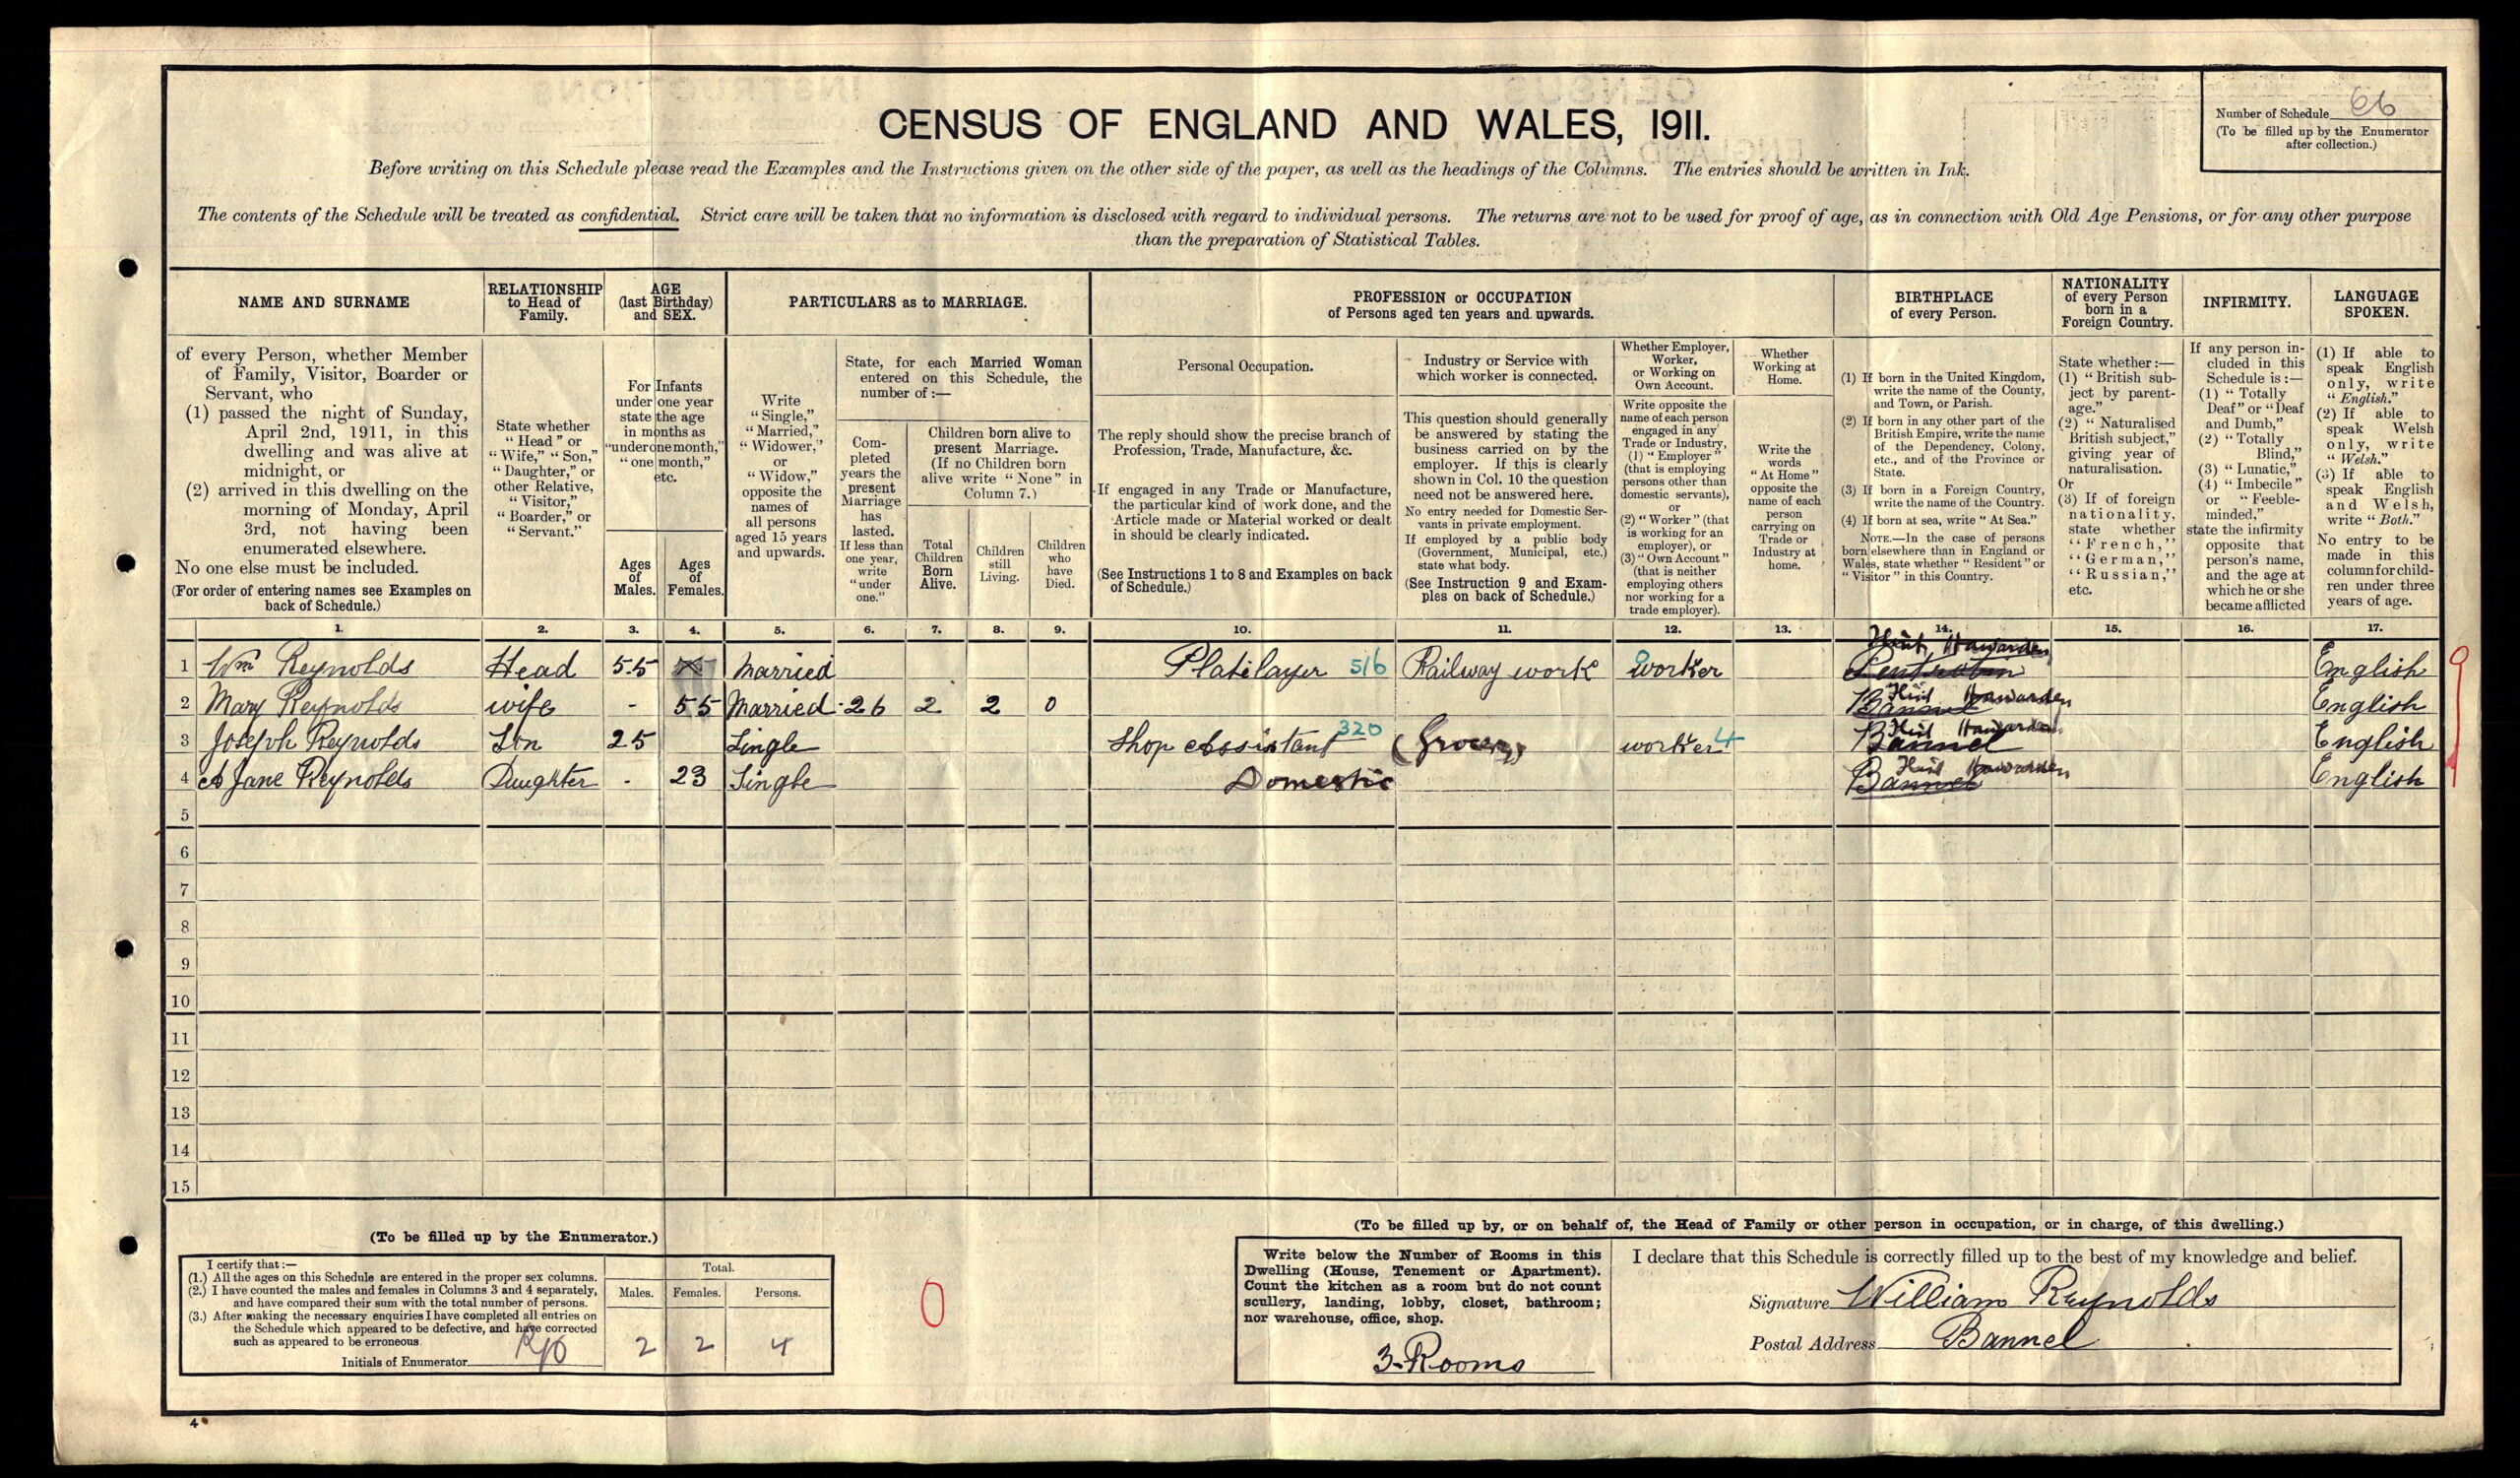 Number of Schedule 66
(To be filled up by the Enumerator
after collection.)
CENSUS OF ENGLAND AND WALES, 1911.
Before writing on this Schedule please read the Examples and the Instructions given on the other side of the paper, as well as the headings of the Columns. The entries should be written in Ink.
The contents of the Schedule will be treated as confidential. Strict care will be taken that no information is disclosed with regard to individual persons. The returns are not to be used for proof of age, as in connection with Old Age Pensions, or for any other purpose
than the preparation of Statistical Tables.
NAME AND SURNAME
of every Person, whether Member
of Family, Visitor, Boarder or
Servant, who
(1) passed the night of Sunday,
April 2nd, 1911, in this
dwelling and was alive at
midnight, or
(2) arrived in this dwelling on the
morning of Monday, April
3rd, not having been
enumerated elsewhere.
No one else must be included.
(For order of entering names see Examples on
back of Schedule.)
1.
RELATIONSHIP
to Head of
Family.
State whether
"Head" or
"Wife," "Son,"
"Daughter," or
other Relative,
"Visitor,"
"Boarder," or
"Servant."
2.
AGE
(last Birthday)
and SEX.
For Infants
under one year
state the age
in months as
"under one month,"
"one month,"
etc.
Ages
of
Males.
3.
Ages
of
Females.
4.
PARTICULARS as to MARRIAGE.
Write
"Single,"
"Married,"
"Widower,"
or
"Widow,"
opposite the
names of
all persons
aged 15 years
and upwards.
5.
State, for each Married Woman
entered on this Schedule, the
number of :—
Com-
pleted
years the
present
Marriage
has
lasted.
If less than
one year,
write
"under
one."
6.
Children born alive to
present Marriage.
(If no Children born
alive write "None" in
Column 7.)
Total
Children
Born
Alive.
7.
Children
still
Living.
8.
Children
who
have
Died.
9.
PROFESSION or OCCUPATION
of Persons aged ten years and upwards.
Personal Occupation.
The reply should show the precise branch of
Profession, Trade, Manufacture, &c.
If engaged in any Trade or Manufacture,
the particular kind of work done, and the
Article made or Material worked or dealt
in should be clearly indicated.
(See Instructions 1 to 8 and Examples on back
of Schedule.)
10.
Industry or Service with
which worker is connected.
This question should generally
be answered by stating the
business carried on by the
employer. If this is clearly
shown in Col. 10 the question
need not be answered here.
No entry needed for Domestic Ser-
vants in private employment.
If employed by a public body
(Government, Municipal, etc.)
state what body.
(See Instruction 9 and Exam-
ples on back of Schedule.)
11.
Whether Employer,
Worker,
or Working on
Own Account.
Write opposite the
name of each person
engaged in any
Trade or Industry,
(1) "Employer"
(that is employing
persons other than
domestic servants),
or
(2) "Worker" (that
is working for an
employer), or
(3) "Own Account"
(that is neither
employing others
nor working for a
trade employer).
12.
Whether
Working at
Home.
Write the
words
"At Home"
opposite the
name of each
person
carrying on
Trade or
Industry at
home.
13.
BIRTHPLACE
of every Person.
(1) If born in the United Kingdom,
write the name of the County,
and Town, or Parish.
(2) If born in any other part of the
British Empire, write the name
of the Dependency, Colony,
etc., and of the Province or
State.
(3) If born in a Foreign Country,
write the name of the Country.
(4) If born at sea, write "At Sea."
NOTE.—In the case of persons
born elsewhere than in England or
Wales, state whether "Resident" or
"Visitor" in this Country.
14.
NATIONALITY
of every Person
born in a
Foreign Country.
State whether :—
(1) "British sub-
ject by parent-
age."
(2) "Naturalised
British subject,"
giving year of
naturalisation.
Or
(3) If of foreign
nationality,
state whether
"French,"
"German,"
"Russian,"
etc.
15.
INFIRMITY.
If any person in-
cluded in this
Schedule is :—
(1) "Totally
Deaf" or "Deaf
and Dumb,"
(2) "Totally
Blind,"
(3) "Lunatic,"
(4) "Imbecile"
or "Feeble-
minded,"
state the infirmity
opposite that
person's name,
and the age at
which he or she
became afflicted
16.
LANGUAGE
SPOKEN.
(1) If able to
speak English
only, write
"English."
(2) If able to
speak Welsh
only, write
"Welsh."
(3) If able to
speak English
and Welsh,
write "Both."
No entry to be
made in this
column for child-
ren under three
years of age.
17.
Flint Hawarden
1 Wm Reynolds Head 55 Married Platelayer 516 Railway work worker English
Flint Hawarden
2 Mary Reynolds wife - 55 Married 26 2 2 0 Bannel English
Flint Hawarden
3 Joseph Reynolds Son 25 Single Shop Assistant 320 (Grocery) worker 4 Bannel English
Flint Hawarden
4 A Jane Reynolds Daughter - 23 Single Domestic Bannel English
5
6
7
8
9
10
11
12
13
14
15
(To be filled up by the Enumerator.)
I certify that :—
(1.) All the ages on this Schedule are entered in the proper sex columns.
(2.) I have counted the males and females in Columns 3 and 4 separately,
and have compared their sum with the total number of persons.
(3.) After making the necessary enquiries I have completed all entries on
the Schedule which appeared to be defective, and have corrected
such as appeared to be erroneous
Initials of Enumerator
Total.
Males. Females. Persons.
2 2 4
0
(To be filled up by, or on behalf of, the Head of Family or other person in occupation, or in charge, of this dwelling.)
Write below the Number of Rooms in this
Dwelling (House, Tenement or Apartment).
Count the kitchen as a room but do not count
scullery, landing, lobby, closet, bathroom;
nor warehouse, office, shop.
3-Rooms
I declare that this Schedule is correctly filled up to the best of my knowledge and belief.
Signature William Reynolds
Postal Address Bannel
4